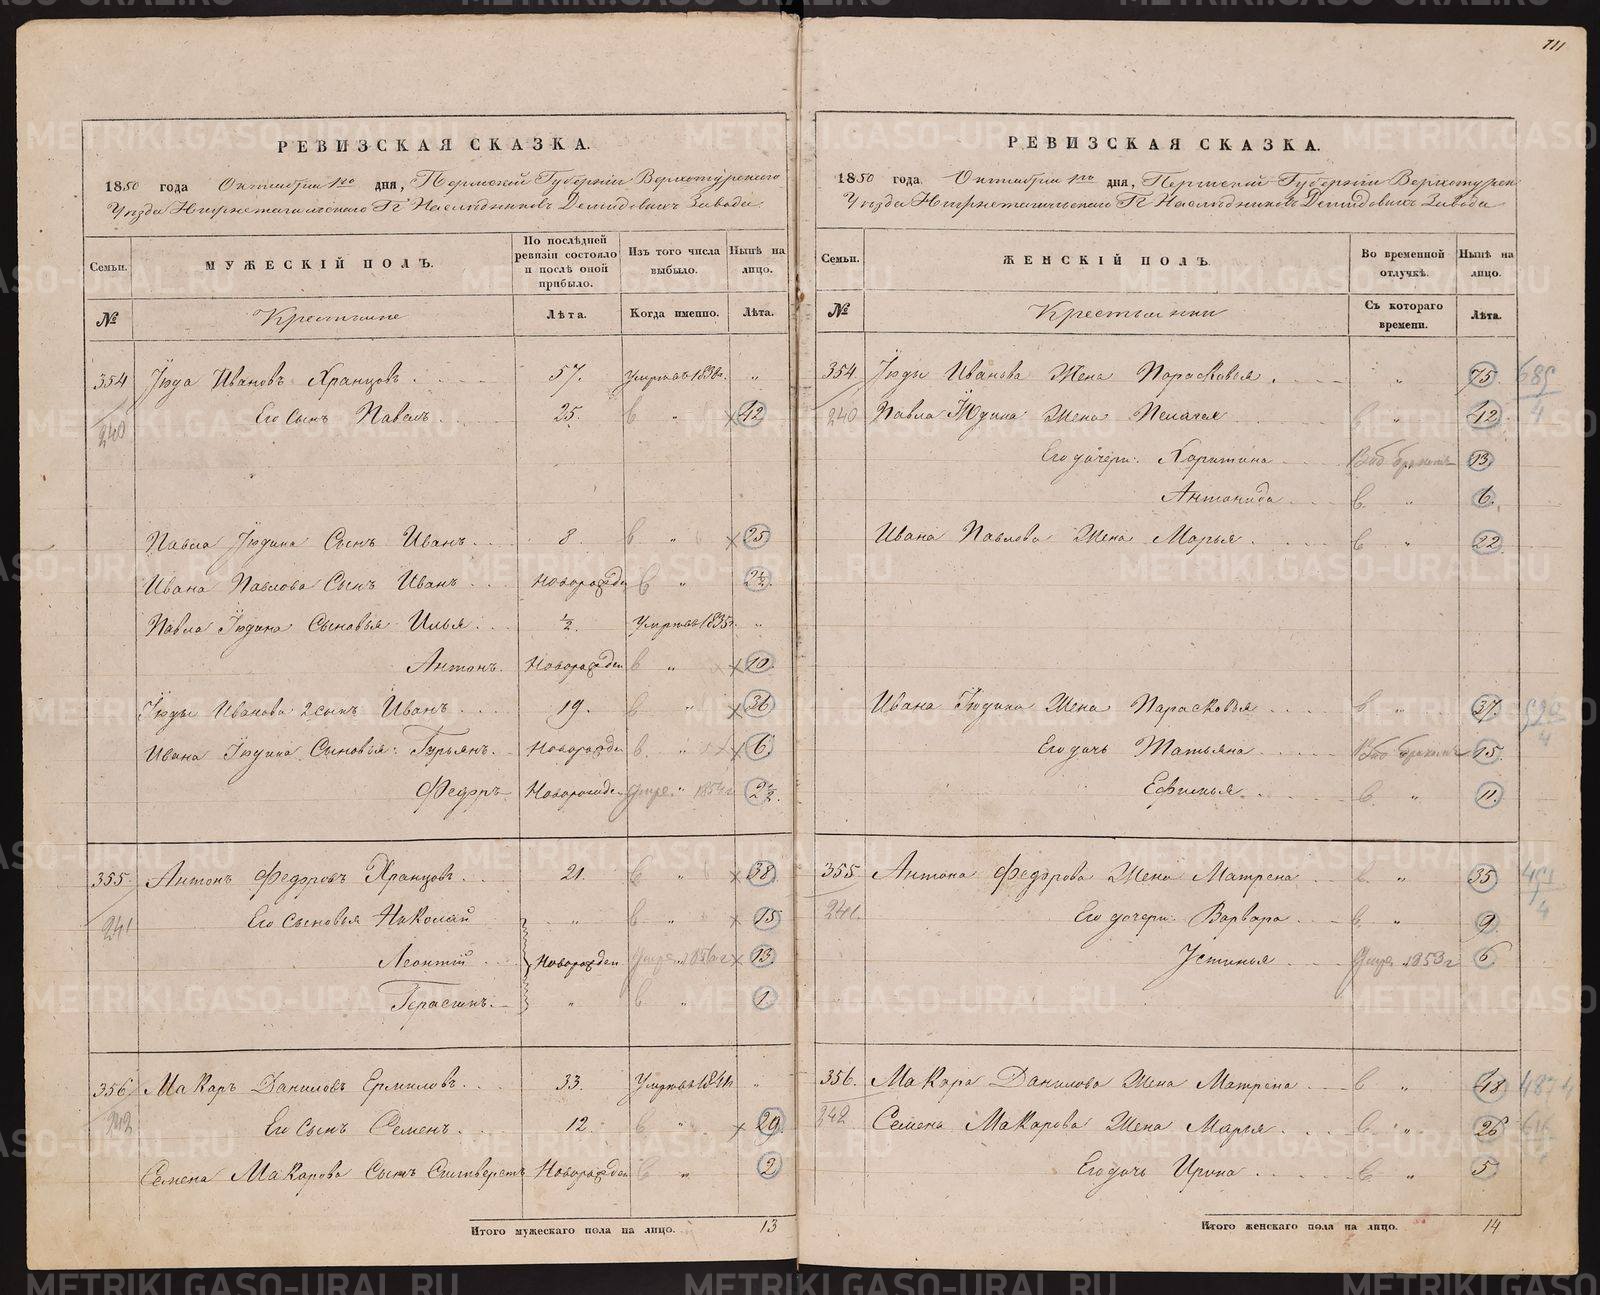 711
РЕВИЗСКАЯ СКАЗКА.
1850 года Октября 1го дня, Пермской Губерніи Верхотурскаго
Уѣзда Нижнетагильскаго Гг Наслѣдниковъ Демидовыхъ Завода
Семьи. МУЖЕСКІЙ ПОЛЪ. По послѣдней ревизіи состояло и послѣ оной прибыло. Изъ того числа выбыло. Нынѣ на лицо.
№ Крестьяне Лѣта. Когда именно. Лѣта.
354 Іюда Ивановъ Хранцовъ 57. Умръ въ 183 „
240 Его Сынъ Павелъ 25. „ 42
Павла Іюдина Сынъ Иванъ 8. „ 25
Ивана Павлова Сынъ Иванъ Новорожден „ 2½
Павла Іюдина Сыновья Илья ½. Умръ въ 1835г. „
Антонъ. Новорожден „ 10
Іюды Иванова 2 сынъ Иванъ 19. „ 36
Ивана Іюдина Сыновья: Гурьянъ. Новорожден „ 6
Федоръ Новорожден умре 185 г 2½
355. Антонъ Федоровъ Хранцовъ 21. „ 38
241 Его Сыновья Николай „ „ 15
Леонтій Новорожден умре 1856 г 13
Герасимъ. „ „ 1
356 Макаръ Даниловъ Ермиловъ 33. Умръ въ 184 „
242 Его Сынъ Семенъ 12. „ 29
Семена Макарова Сынъ Силверстъ Новорожден „ 2
Итого мужескаго пола на лицо. 13
РЕВИЗСКАЯ СКАЗКА.
1850 года Октября 1го дня, Пермской Губерніи Верхотурск
Уѣзда Нижнетагильскаго Гг Наслѣдниковъ Демидовыхъ Завода
Семьи. ЖЕНСКІЙ ПОЛЪ. Во временной отлучкѣ. Нынѣ на лицо.
№ Крестьянки Съ котораго времени. Лѣта.
354. Іюды Иванова Жена Парасковья „ 75
240 Павла Іюдина Жена Пелагея „ 42
Его дочери: Харитина Выб бракомъ 13
Антонида „ 6.
Ивана Павлова Жена Марья „ 22
Ивана Іюдина Жена Парасковья „ 37
Его дочь Татьяна Выб бракомъ 15
Ефимья „ 11.
355. Антона Федорова Жена Матрена „ 35
241. Его дочери: Варвара „ 9
Устинья умре 1853 г 6.
356. Макара Данилова Жена Матрена „ 48
242 Семена Макарова Жена Марья „ 26
Его дочь Ирина „ 5
Итого женскаго пола на лицо. 14
METRIKI.GASO-URAL.RU